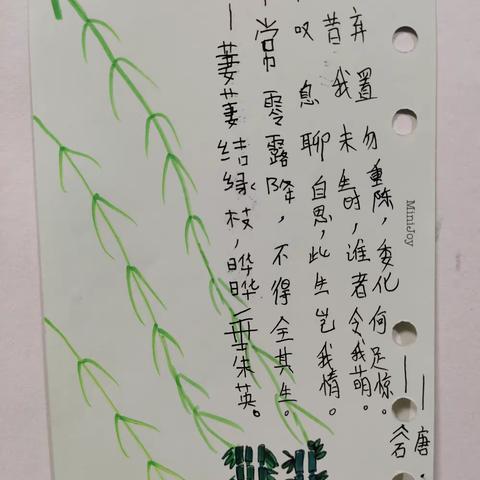 萋萋结绿枝，晔晔垂朱英。
常零露降，不得全其生。
叹息聊自思，此生岂我情。
昔我未生时，谁者令我萌。
弃置勿重陈，委化何足惊。
——唐
MiniJoy